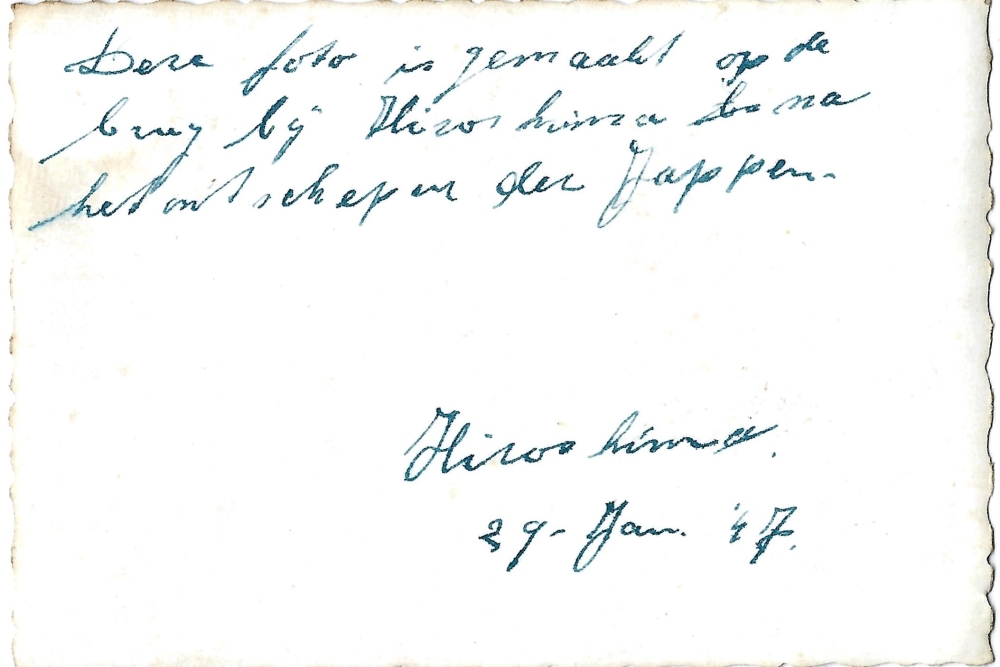 Deze foto is gemaakt op de
brug bij Hiroshima na
het ontschepen der Jappen.
Hiroshima.
29-Jan. '47.